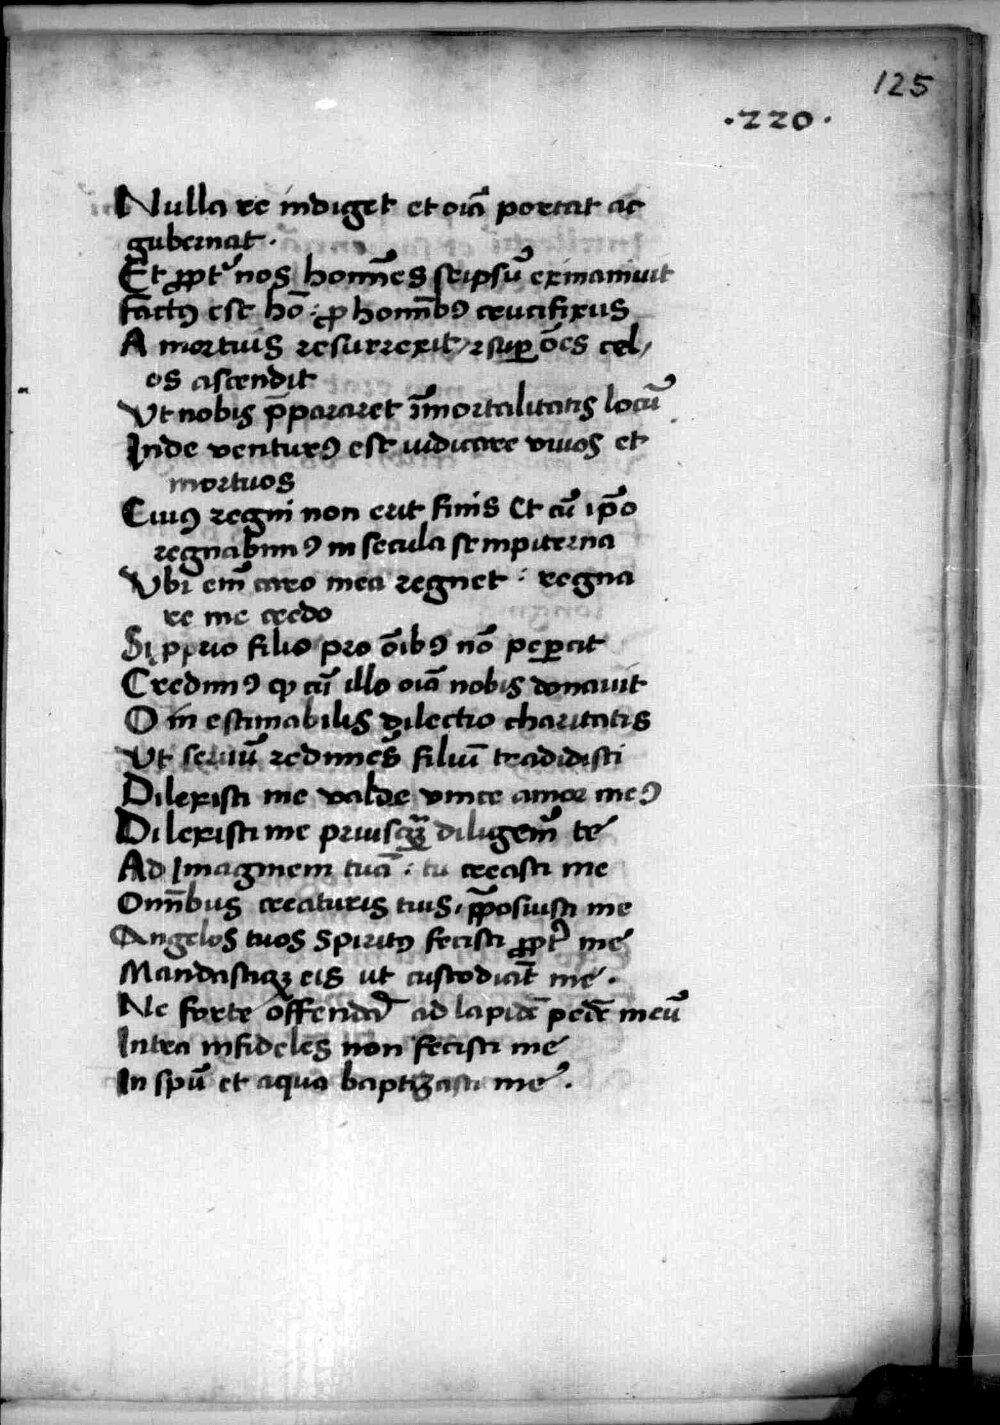 125
·220·
Nulla re indiget et oīa portat ac
gubernat·
Et ꝓpt̉ nos homīes seipsū exinaniuit
factꝰ est hō : ꝓ homībꝰ crucifixus
A mortuis resurrexit, ⁊ suꝑ ōēs cel,
os ascendit
Vt nobis p̄pararet īmortalitatis locū
Inde venturꝰ est iudicare viuos et
mortuos
Eiuꝰ regni non erit finis Et cū ip̄o
regnabimꝰ in secula sempiterna
Vbi em̄ caro mea regnet : regna
re me credo
Si ꝓprio filio pro ōibꝰ nō peꝑcit
Credimꝰ ꝙ cū illo oīa nobis donauit
O in estimabilis dilectio charitatis
Vt seruū redimēs filiū tradidisti
Dilexisti me valde vnice amor meꝰ
Dilexisti me priusqꝫ̄ diligem̄ te
Ad Imaginem tuā : tu creasti me
Omībus creaturis tuis, ꝓ̄posuisti me
Angelos tuos spiritꝰ fecisti ꝓpt̉ me
Mandastiqꝫ eis ut custodiāt me·
Ne forte offendā ad lapidē pedē meū
Intra infideles non fecisti me
In spū et aqua baptizasti me·